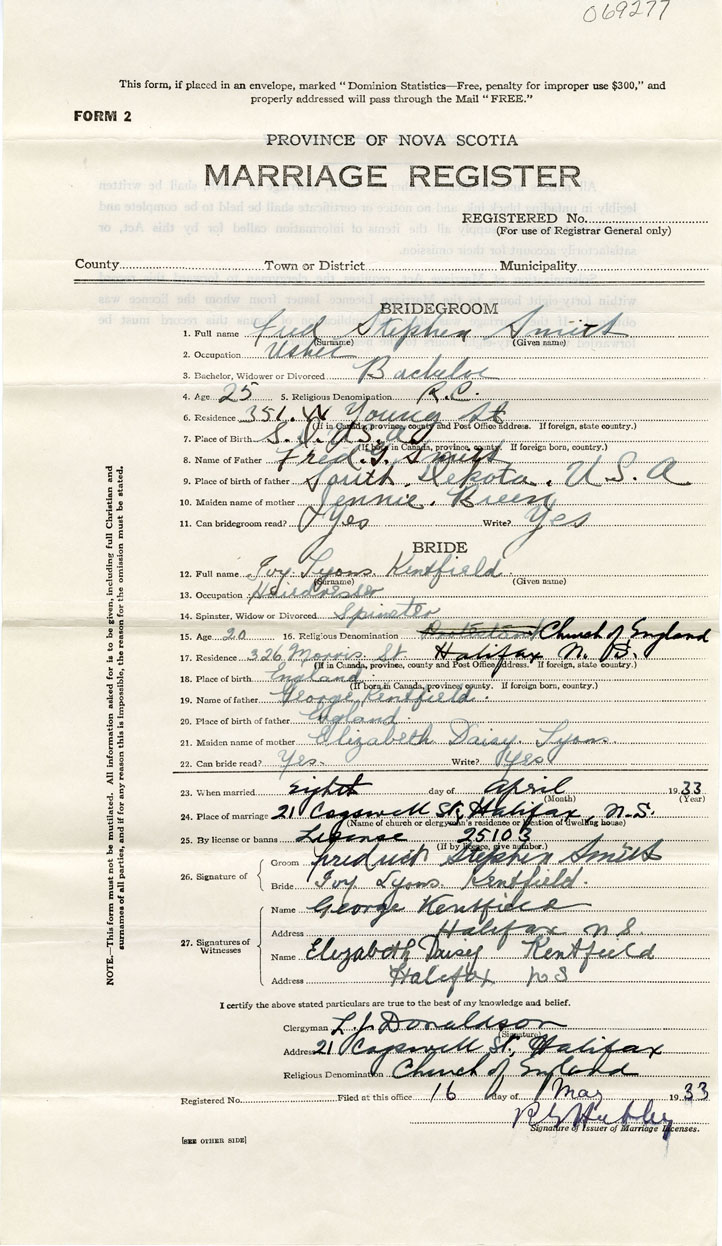 069277
This form, if placed in an envelope, marked "Dominion Statistics—Free, penalty for improper use $300," and
properly addressed will pass through the Mail "FREE."
FORM 2
PROVINCE OF NOVA SCOTIA
MARRIAGE REGISTER
REGISTERED No.
(For use of Registrar General only)
County Town or District Municipality
BRIDEGROOM
1. Full name Fred Stephen Smith
(Surname) (Given name)
2. Occupation Usher
3. Bachelor, Widower or Divorced Bachelor
4. Age 25 5. Religious Denomination R.C.
6. Residence 351 Young St
(If in Canada, province, county and Post Office Address. If foreign, state country.)
7. Place of Birth S. D. U.S.A.
(If born in Canada, province, county. If foreign born, country.)
8. Name of Father Fred. Smith
9. Place of birth of father South Dekota. U.S.A
10. Maiden name of mother Jennie
11. Can bridegroom read? Yes Write? Yes
BRIDE
12. Full name Ivy Lyons Kentfield
(Surname) (Given name)
13. Occupation Hairdresser
14. Spinster, Widow or Divorced Spinster
15. Age 20 16. Religious Denomination Protestant Church of England
17. Residence 326 Morris St Halifax N.S.
(If in Canada, province, county and Post Office Address. If foreign, state country.)
18. Place of birth England
(If born in Canada, province, county. If foreign born, country.)
19. Name of father George Kentfield
20. Place of birth of father England
21. Maiden name of mother Elizabeth Daisy Lyons
22. Can bride read? Yes Write? Yes
23. When married eighth day of April 1933
(Month) (Year)
24. Place of marriage 21 Cogswell St, Halifax, N.S.
(Name of church or clergyman's residence or location of dwelling house)
25. By license or banns License 25103
(If by license, give number.)
26. Signature of Groom Fredrick Stephen Smith
Bride Ivy Lyons Kentfield.
27. Signatures of Witnesses
Name George Kentfield
Address Halifax N.S.
Name Elizabeth Daisy Kentfield
Address Halifax NS
I certify the above stated particulars are true to the best of my knowledge and belief.
Clergyman L.J. Donaldson
(Signature)
Address 21 Cogswell St, Halifax
Religious Denomination Church of England
Registered No. Filed at this office 16 day of May 1933
Signature of Issuer of Marriage Licenses.
[SEE OTHER SIDE]
NOTE.—This form must not be mutilated. All information asked for is to be given, including full Christian and
surnames of all parties, and if for any reason this is impossible, the reason for the omission must be stated.